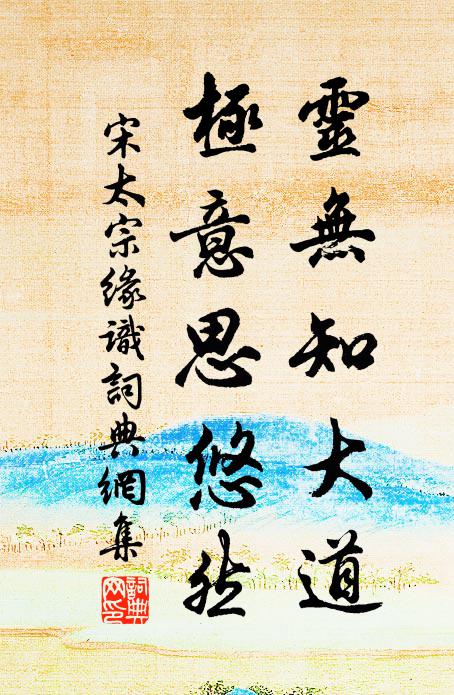 靈無知大道
極意思悠然
宋太宗緣識詞典網集